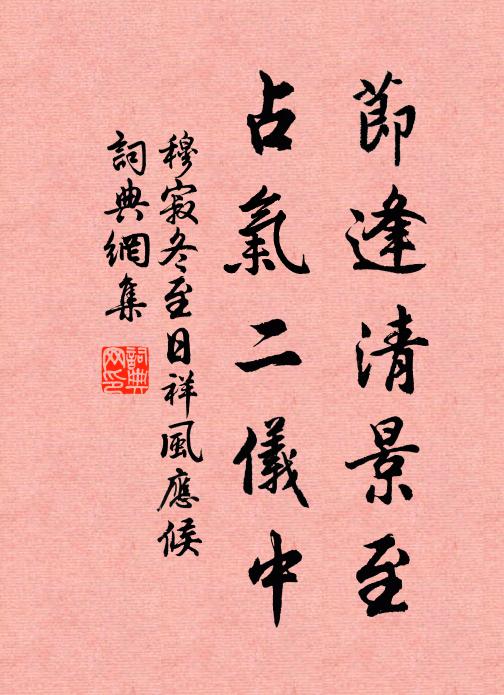 節逢清景至
占氣二儀中
穆寂冬至日祥風應候
詞典網集
詞典網印